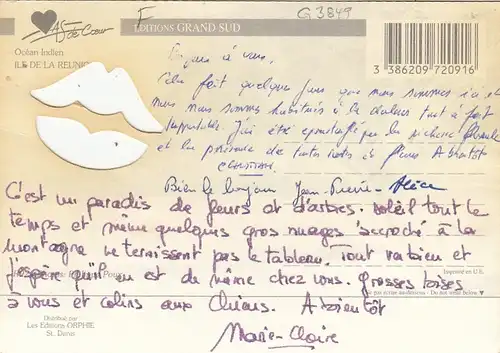 As de Cœur
Océan Indien
ILE DE LA REUNION
F
EDITIONS GRAND SUD
G 3849
3 386209 720916
à vous,
Cela fait quelques jours que nous sommes ici et
nous nous sommes habitués à la chaleur tout à fait
supportable J'ai été par la richesse
et la présence de toutes sortes de fleurs A bientôt
Bien le bonjour Jean-Pierre - Alice
C'est un paradis de fleurs et d'arbres. Soleil tout le
temps et même quelques gros nuages accroché à la
montagne ne ternissent pas le tableau. Tout va bien et
j'espère qu'il en est de même chez vous. Grosses bises
à vous et calins aux Chiens. A bientôt
Marie-Claire
Imprimé en U.E.
Do not write below
Distribué par
Les Editions ORPHIE
St. Denis